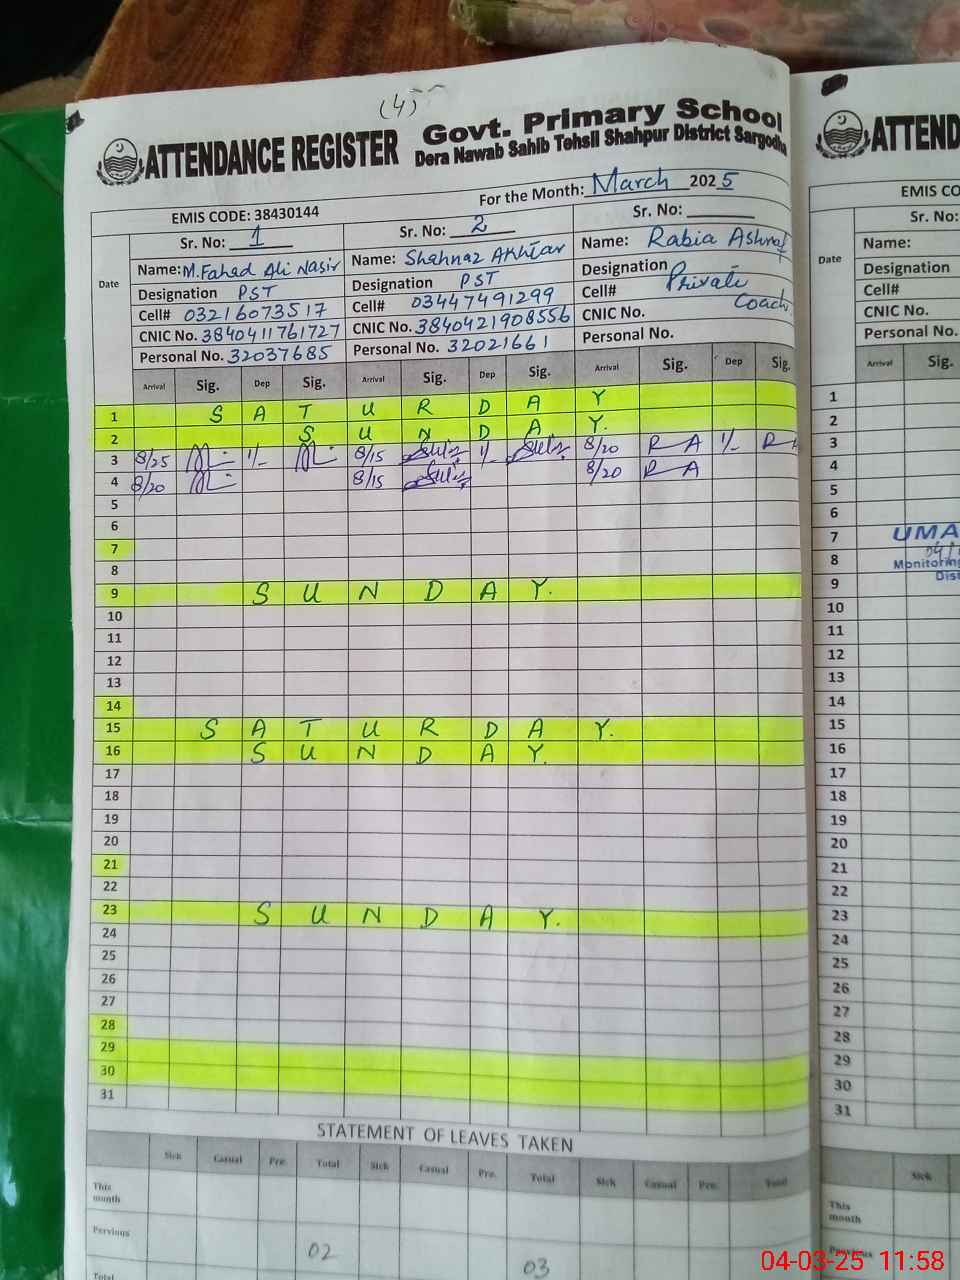 (4)
ATTENDANCE REGISTER
Govt. Primary School
Dera Nawab Sahib Tehsil Shahpur District Sargodha
For the Month: March 2025
EMIS CODE: 38430144
Sr. No: 1
Sr. No: 2
Sr. No:
Date
Name: M.Fahad Ali Nasir
Name: Shahnaz Akhtar
Name: Rabia Ashraf
Designation PST
Designation PST
Designation Private
Cell# 03216073517
Cell# 03447491299
Cell# Coach
CNIC No. 3840411761727
CNIC No. 3840421908556
CNIC No.
Personal No. 32037685
Personal No. 32021661
Personal No.
Arrival Sig. Dep Sig. Arrival Sig. Dep Sig. Arrival Sig. Dep Sig.
1 S A T U R D A Y
2 S U N D A Y.
3 8/25 1/- 8/15 1/- 8/20 R A 1/- R A
4 8/20 8/15 8/20 R A
5
6
7
8
9 S U N D A Y.
10
11
12
13
14
15 S A T U R D A Y.
16 S U N D A Y.
17
18
19
20
21
22
23 S U N D A Y.
24
25
26
27
28
29
30
31
STATEMENT OF LEAVES TAKEN
Sick Casual Pre. Total Sick Casual Pre. Total Sick Casual Pre. Total
This month
Pervious 02 03
Total
ATTEND
EMIS CO
Sr. No:
Date
Name:
Designation
Cell#
CNIC No.
Personal No.
Arrival Sig.
1
2
3
4
5
6
7 UMA
8 04/
Monitoring
Dist
9
10
11
12
13
14
15
16
17
18
19
20
21
22
23
24
25
26
27
28
29
30
31
Sick
This month
Pervious
04-03-25 11:58